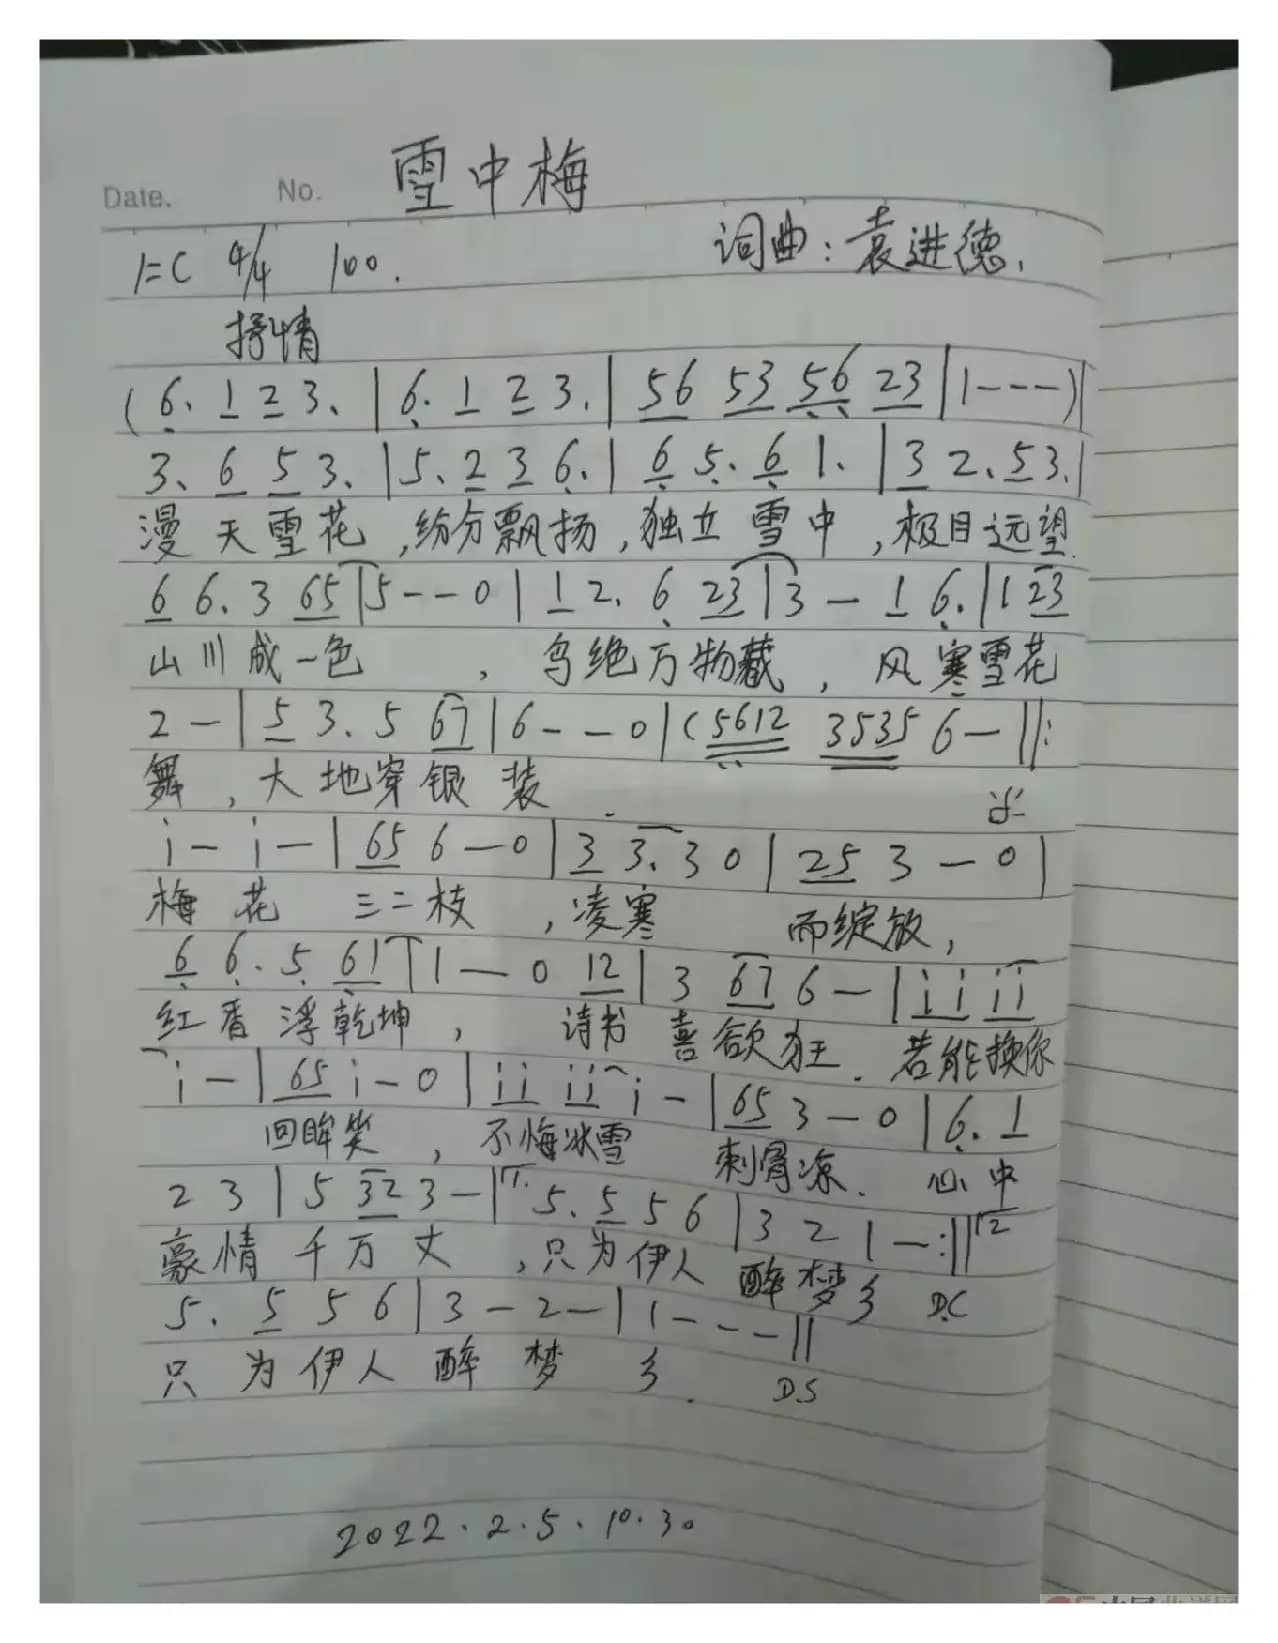 Date. No. 雪中梅
1=C 4/4 100. 词曲：袁进德.
抒情
(6. 1 2 3. | 6. 1 2 3. | 56 53 56 23 | 1---)|
3. 6 5 3. | 5. 2 3 6. | 6 5. 6 1. | 3 2. 5 3. |
漫天雪花,纷纷飘扬,独立雪中,极目远望.
6 6. 3 65 | 5--0 | 1 2. 6 23 | 3 - 1 6. | 1 23
山川成一色,鸟绝万物藏,风寒雪花
2 - | 5 3. 5 67 | 6--0 | (5612 3535 6- ||:
舞,大地穿银装.
i - i - | 65 6 - 0 | 3 3. 3 0 | 25 3 - 0 |
梅花 三二枝,凌寒 而绽放,
6 6. 5 61 | 1 - 0 12 | 3 67 6 - | i i i i
红香浮乾坤, 诗书喜欲狂. 若能换你
i - | 65 i - 0 | i i i i i - | 65 3 - 0 | 6. 1
回眸笑, 不悔冰雪 刺骨凉. 心中
2 3 | 5 32 3 - | 1. 5. 5 5 6 | 3 2 1 - :|| 2
豪情千万丈,只为伊人 醉梦乡 D.C
5. 5 5 6 | 3 - 2 - | 1 - - - ||
只为伊人醉梦乡. D.S
2022.2.5.10.30